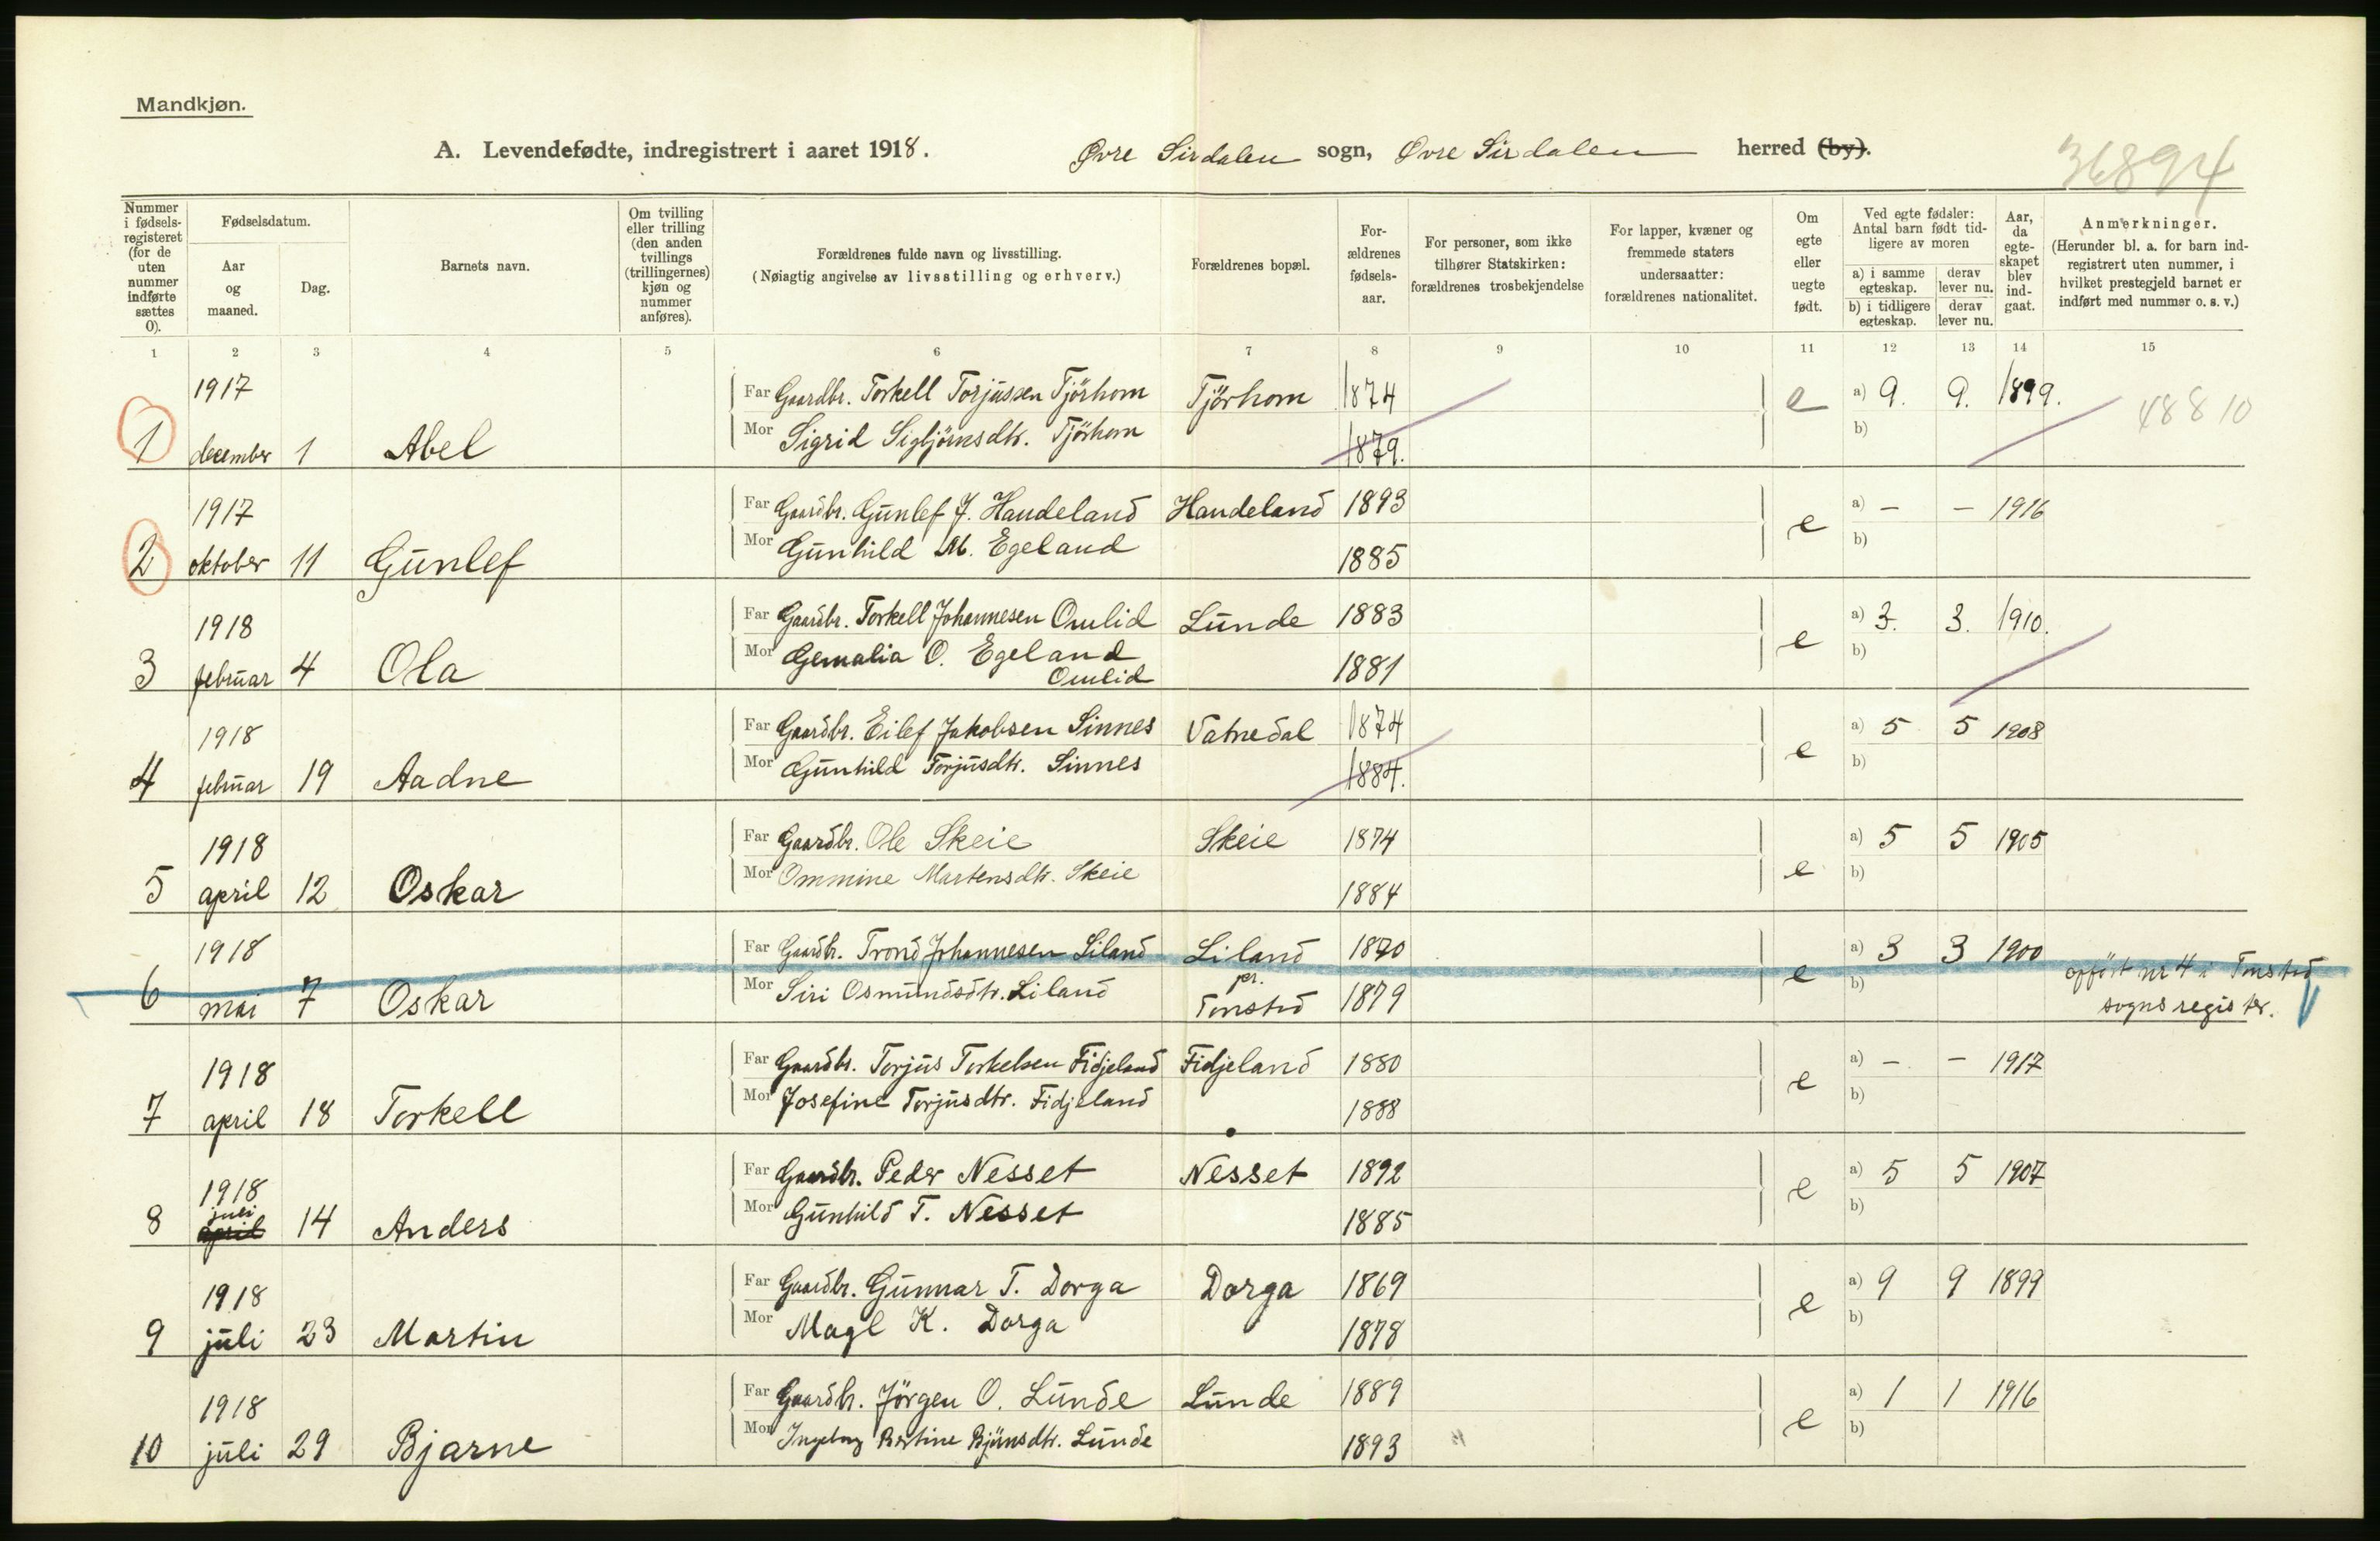 Mandkjøn.
A. Levendefødte, indregistrert i aaret 1918. Øvre Sirdalen sogn, Øvre Sirdalen herred (by).
36894
Nummer i fødselsregisteret (for de uten nummer indførte sættes 0).
Fødselsdatum.
Aar og maaned.
Dag.
Barnets navn.
Om tvilling eller trilling (den anden tvillings (trillingernes) kjøn og nummer anføres).
Forældrenes fulde navn og livsstilling.
(Nøiagtig angivelse av livsstilling og erhverv.)
Forældrenes bopæl.
Forældrenes fødselsaar.
For personer, som ikke tilhører Statskirken: forældrenes trosbekjendelse
For lapper, kvæner og fremmede staters undersaatter: forældrenes nationalitet.
Om egte eller uegte født.
Ved egte fødsler: Antal barn født tidligere av moren
a) i samme egteskap. derav lever nu.
b) i tidligere egteskap. derav lever nu.
Aar, da egteskapet blev indgaat.
Anmerkninger.
(Herunder bl. a. for barn indregistrert uten nummer, i hvilket prestegjeld barnet er indført med nummer o. s. v.)
1 2 3 4 5 6 7 8 9 10 11 12 13 14 15
1917 Far Gaardbr. Torkell Torjussen Tjörhom Tjörhom 1874 e a) 9. 9. 1899. 48810
1 december 1 Abel Mor Sigrid Sigbjörnsdtr. Tjörhom 1879. b)
1917 Far Gaardbr. Gunlef J. Haudeland Haudeland 1893 e a) – – 1916
2 oktober 11 Gunlef Mor Gunhild M. Egeland 1885 b)
1918 Far Gaardbr. Torkell Johannesen Omlid Lunde 1883 e a) 3. 3. 1910.
3 februar 4 Ola Mor Gemalia O. Egeland 1881 b)
Omlid
1918 Far Gaardbr. Eilef Jakobsen Sinnes Vatnedal 1874 e a) 5 5 1908
4 februar 19 Aadne Mor Gunhild Torjusdtr. Sinnes 1884. b)
1918 Far Gaardbr. Ole Skeie Skeie 1874 e a) 5 5 1905
5 april 12 Oskar Mor Ommine Martensdtr. Skeie 1884 b)
1918 Far Gaardbr. Trond Johannesen Liland Liland 1870 e a) 3 3 1900 opført nr 4 i Tonstad
6 mai 7 Oskar Mor Siri Osmundsdtr. Liland pr. Tonstad 1879 b) sogns register.
1918 Far Gaardbr. Torjus Torkelsen Fidjeland Fidjeland 1880 e a) – – 1917
7 april 18 Torkell Mor Josefine Torjusdtr. Fidjeland 1888 b)
1918 Far Gaardbr. Peder Nesset Nesset 1892 e a) 5 5 1907
juli
8 april 14 Anders Mor Gunhild T. Nesset 1885 b)
1918 Far Gaardbr. Gunnar T. Dorga Dorga 1869 e a) 9 9 1899
9 juli 23 Martin Mor Magl K. Dorga 1878 b)
1918 Far Gaardbr. Jörgen O. Lunde Lunde 1889 e a) 1 1 1916
10 juli 29 Bjarne Mor Ingeborg Bertine Björnsdtr. Lunde 1893 b)